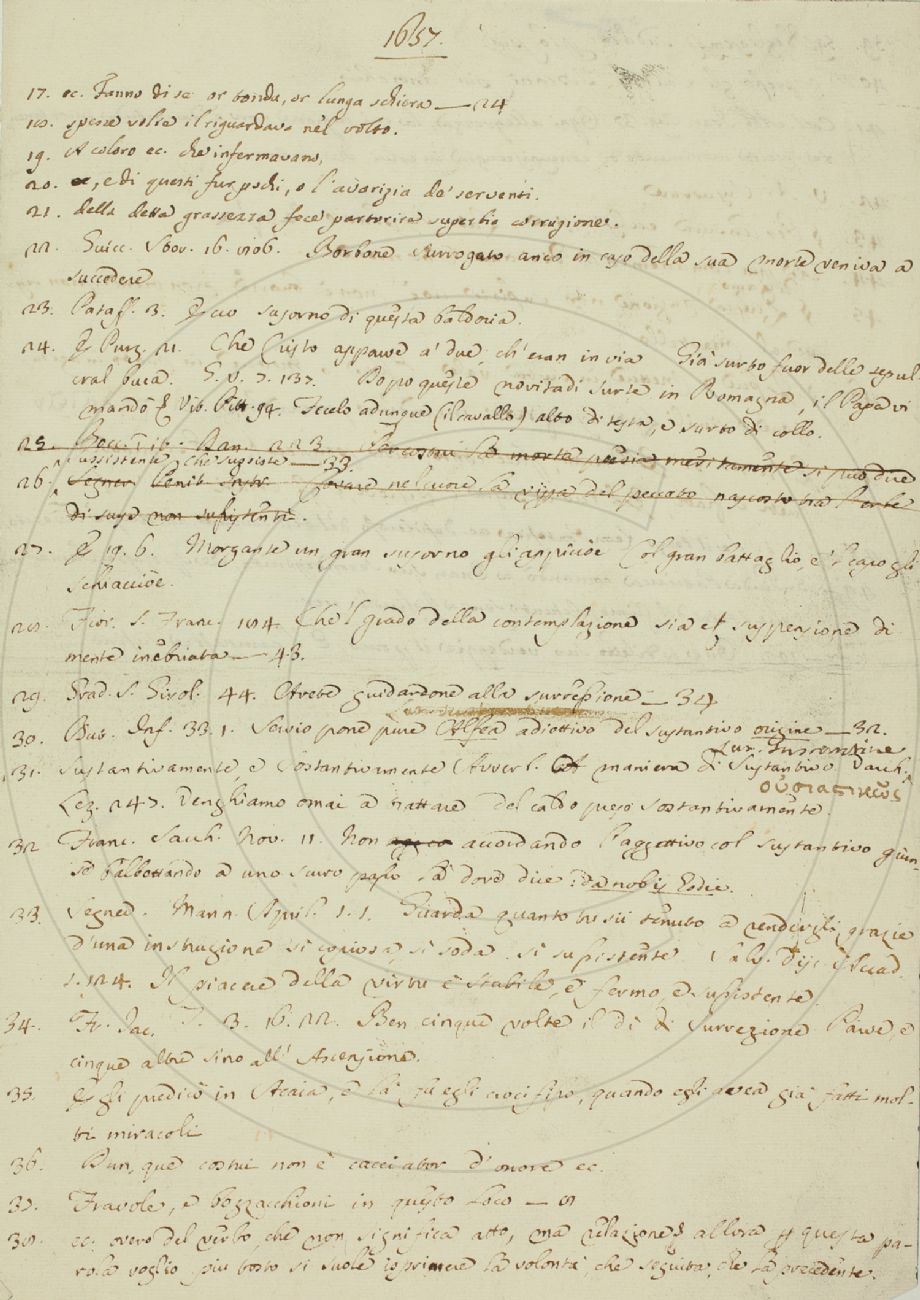 1657.
17. ec. Fanno di se or tonda, or lunga schiera — 24
18. spesse volte il riguardava nel volto.
19. A coloro ec. che infermavano,
20. ec, e di questi fur pochi, o l'avarizia de' serventi.
21. della detta grassezza fece partorire superbia corruzione.
22. Guicc. Stor. 16. 786. Borbone surrogato anco in caso della sua morte veniva a
succedere
23. Pataff. 3. E cuo susorno di questa baldoria.
24. E Purg. 21. Che Cristo apparve a' due, ch'eran in via Già surto fuor delle sepul
cral buca. G. V. 7. 137. Dopo queste novitadi surte in Romagna, il Papa vi
mandò E Lib. Pitt. 94. Fecelo adunque (il cavallo) alto di testa, e surto di collo.
25. Bocc. Lib. Dan. 223. Per costui la morta poesia meritamente si può dire
sussistente, che sussiste — 33.
26. Segner. Penit. Instr. Covare nel cuore la vipera del peccato nascosto tra l'erbe
di scuse non sussistenti.
27. E 19. 6. Morgante un gran susorno gli appiccòe Col gran battaglio, e 'l capo gli
schiacciòe.
28. Fior. S. Franc. 184. Che 'l grado della contemplazione sia et suspensione di
mente inebriata — 43.
29. Grad. S. Girol. 44. Avete guidardone alla surressione — 34
30. But. Inf. 33. 1. Servio pone pure Alfea adiettivo del sustantivo origine — 32.
31. Sustantivamente, e Sostantivamente Avverb. A maniera di Sustantivo. Varch.
οὐσιαστικῶς
Lez. 247. Venghiamo omai a trattare del caldo preso sostantivamente.
32 Franc. Sacch. Nov. 11. Non accordando l'aggettivo col sustantivo giun-
se balbettando a uno scuro passo là dove dice: da nobis hodie.
33. Segner. Mann. April. 1. 1. Guarda quanto tu sii tenuto a rendergli grazie
d'una instruzione sì copiosa, sì soda, sì sussistente. Salv. Disc. Accad.
1. 124. Il piacere della virtù è stabile, è fermo, è sussistente.
34. Fr. Iac. T. 3. 16. 22. Ben cinque volte il dì di surrezione Pàrve, e
cinque altre sino all' Ascensione.
35. Egli predicò in Acaia, e là fu egli crocifisso, quando egli avea già fatti mol-
ti miracoli
36. Dun, que costui non è cacciator d'onore ec.
37. Fravole, e bozzacchioni in questo loco — 8
38. ec. overo del verbo, che non significa atto, ma relazione; allora questa pa-
rola voglio più tosto si suole isprimere la volontà, che seguita, che la precedente.